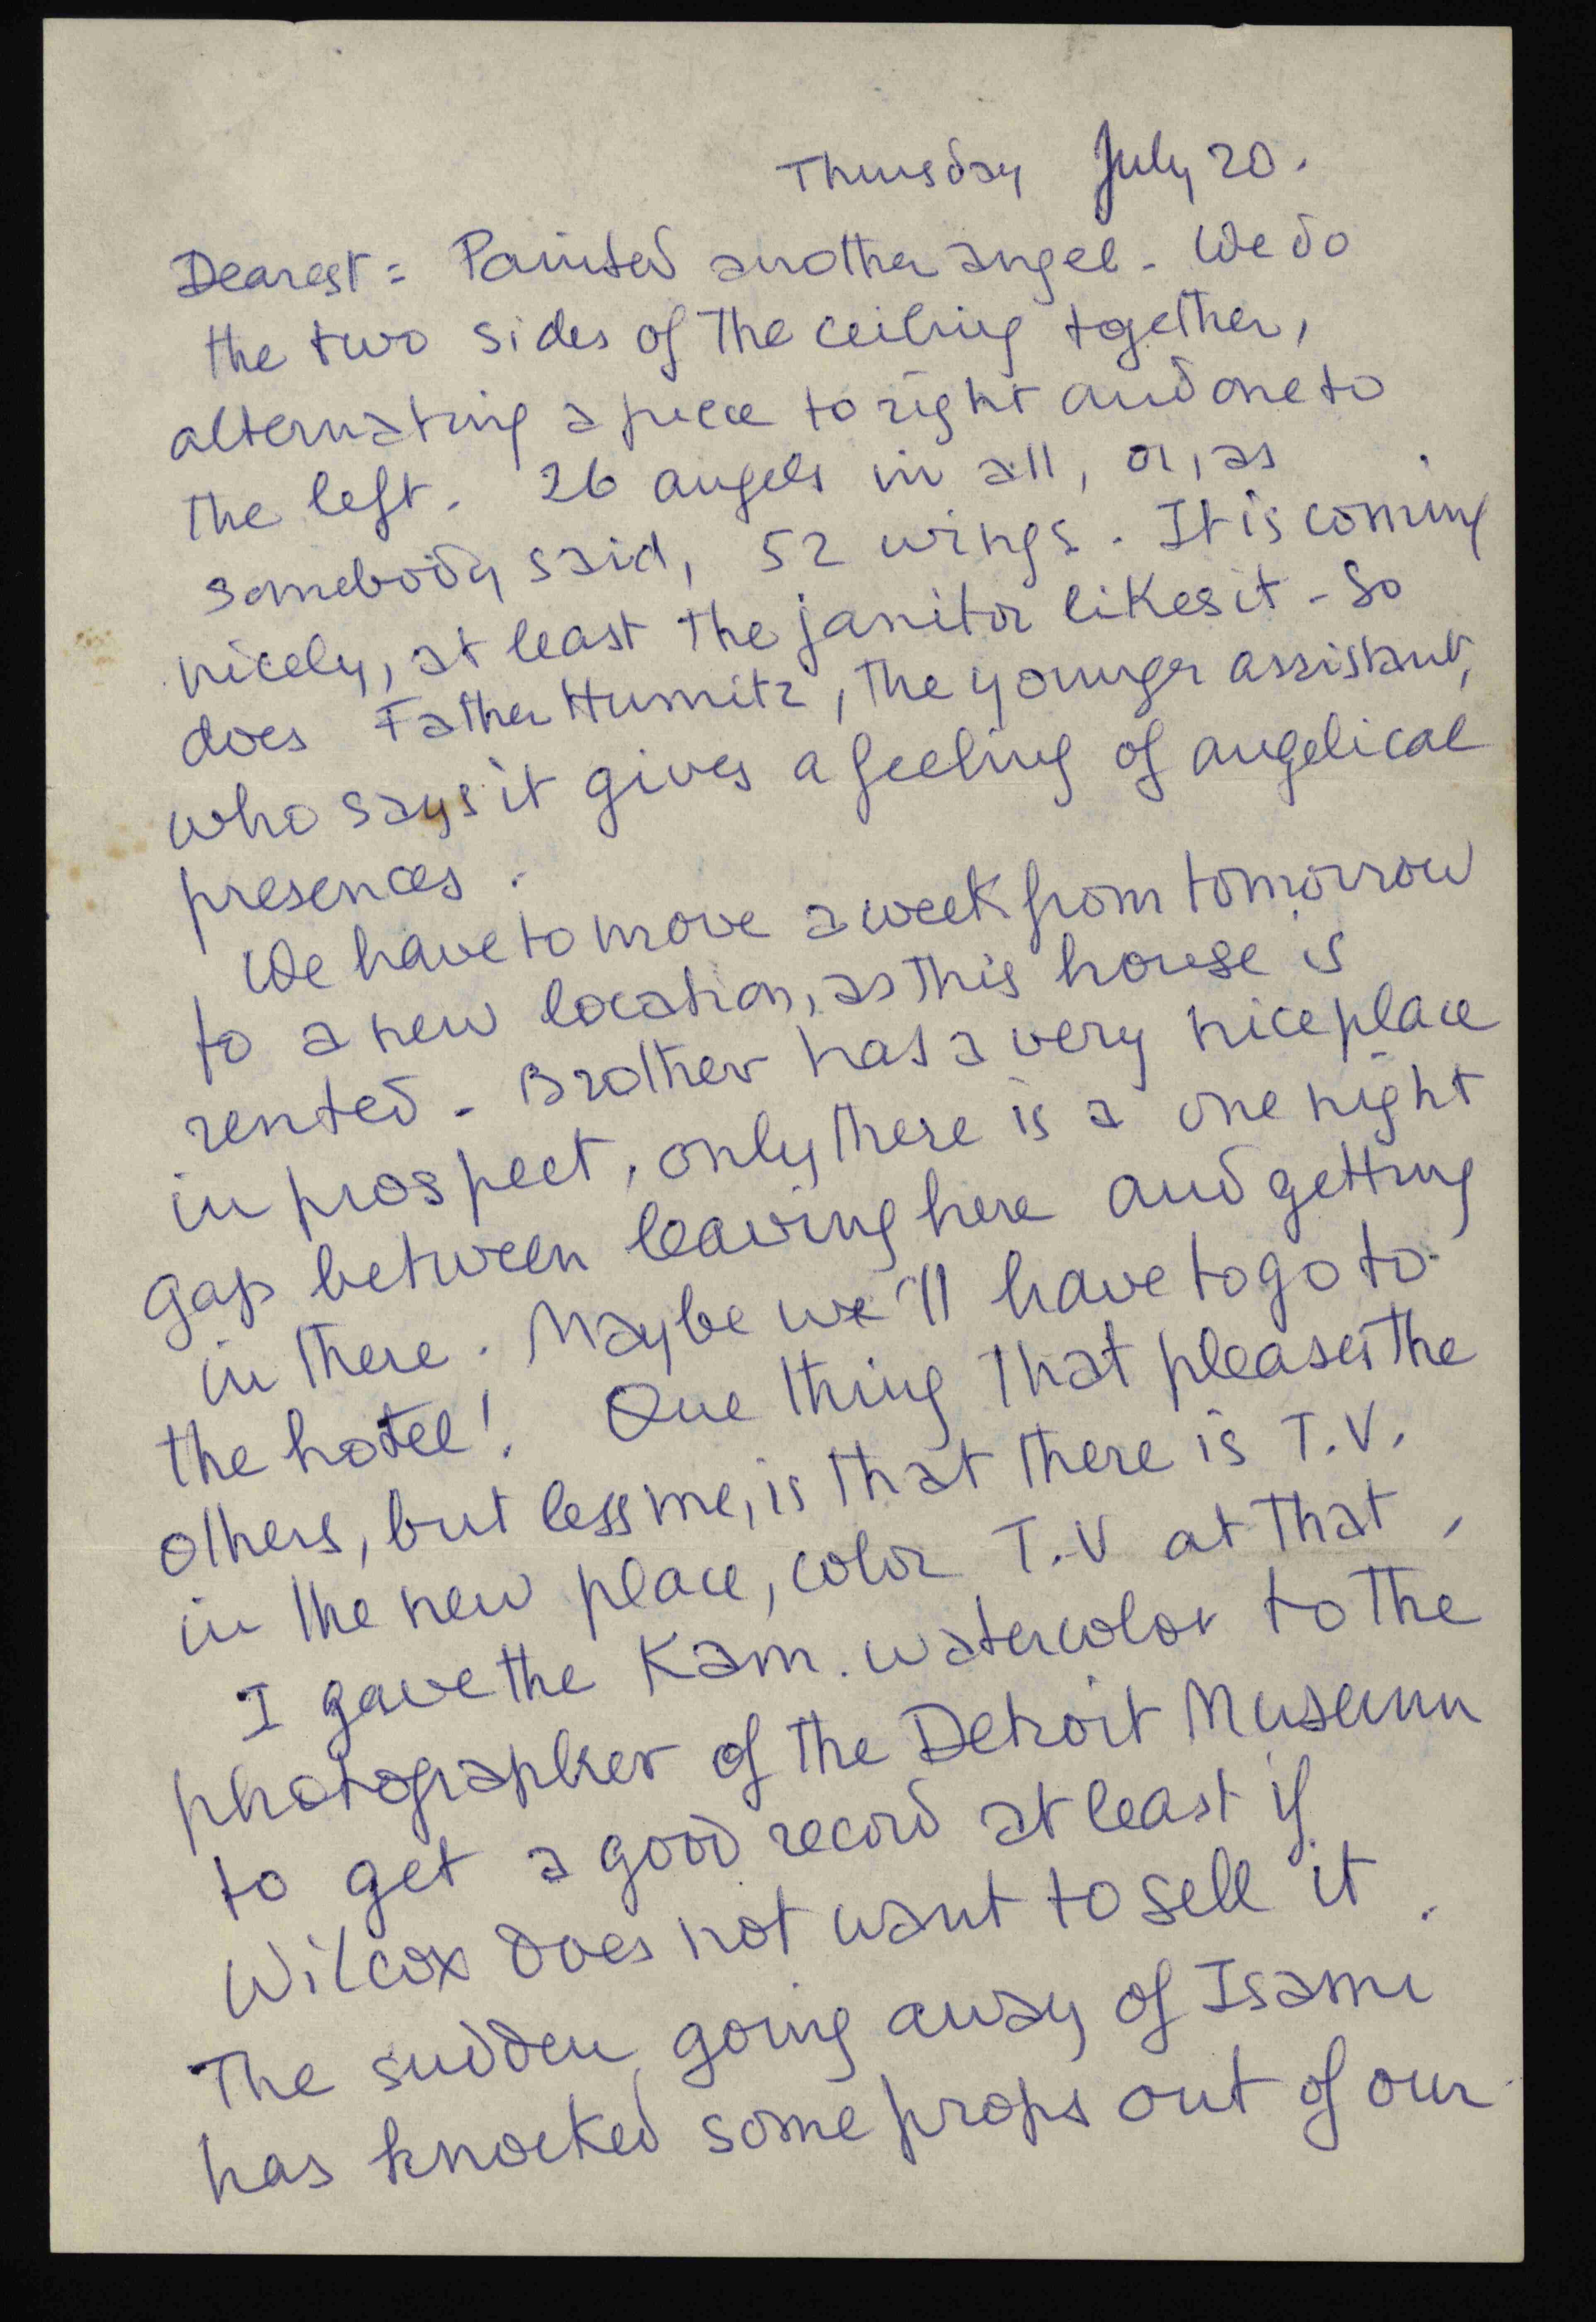 Thursday July 20.
Dearest = Painted another angel - We do
the two sides of the ceiling together,
alternating a piece to right and one to
the left. 26 angels in all, or, as
somebody said, 52 wings. It is coming
nicely, at least the janitor likes it - So
does Father Humitz, the younger assistant,
who says it gives a feeling of angelical
presences.
We have to move a week from tomorrow
to a new location, as this house is
rented - Brother has a very nice place
in prospect, only there is a one night
gap between leaving here and getting
in there. Maybe we'll have to go to
the hotel! One thing that pleases the
others, but less me, is that there is T.V.
in the new place, color T.V at that,
I gave the Kam. watercolor to the
photographer of the Detroit Museum
to get a good record at least if
Wilcox does not want to sell it.
The sudden going away of Isami
has knocked some props out of our